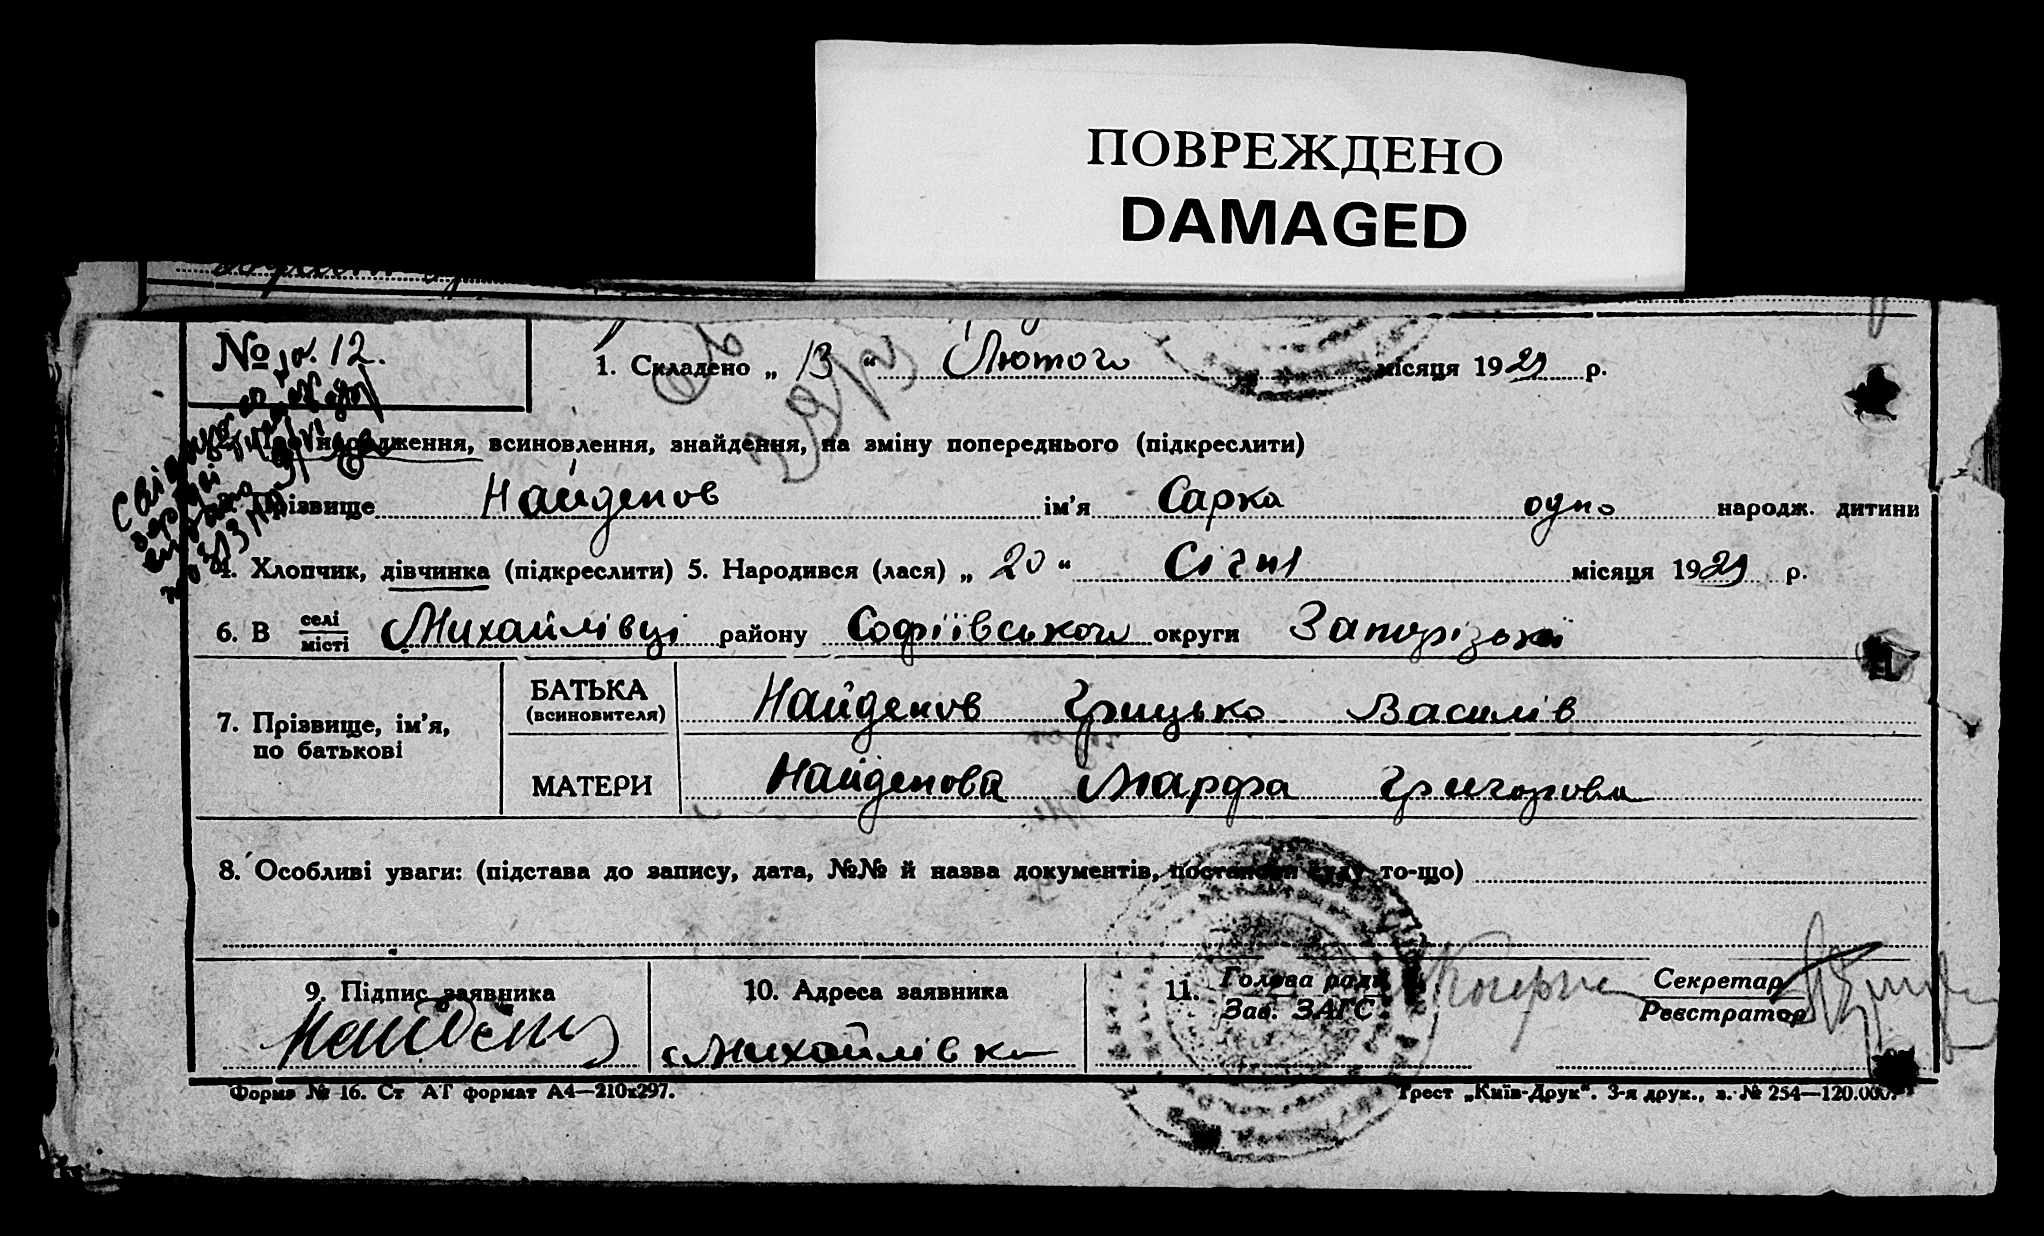 ПОВРЕЖДЕНО
DAMAGED
№ 12.
1. Складено „ 13 “ Лютого місяця 1929 р.
народження, всиновлення, знайдення, на зміну попереднього (підкреслити)
Прізвище Найденов ім'я Сарка одно народж. дитини
4. Хлопчик, дівчинка (підкреслити) 5. Народився (лася) „ 20 “ Січня місяця 1929 р.
6. В селі місті Михайлівці району Софіївського округи Запорізької
7. Прізвище, ім'я, по батькові
БАТЬКА (всиновителя) Найденов Грицько Василів
МАТЕРИ Найденова Марфа Григорова
8. Особливі уваги: (підстава до запису, дата, №№ й назва документів, постанови суду то-що)
9. Підпис заявника
10. Адреса заявника
Михайлівка
11. Голова ради Зав. ЗАГС
Секретар Реєстратор
Форма № 16. Ст АГ формат А4—210х297.
Трест „Київ-Друк“. 3-я друк., з. № 254—120.000.